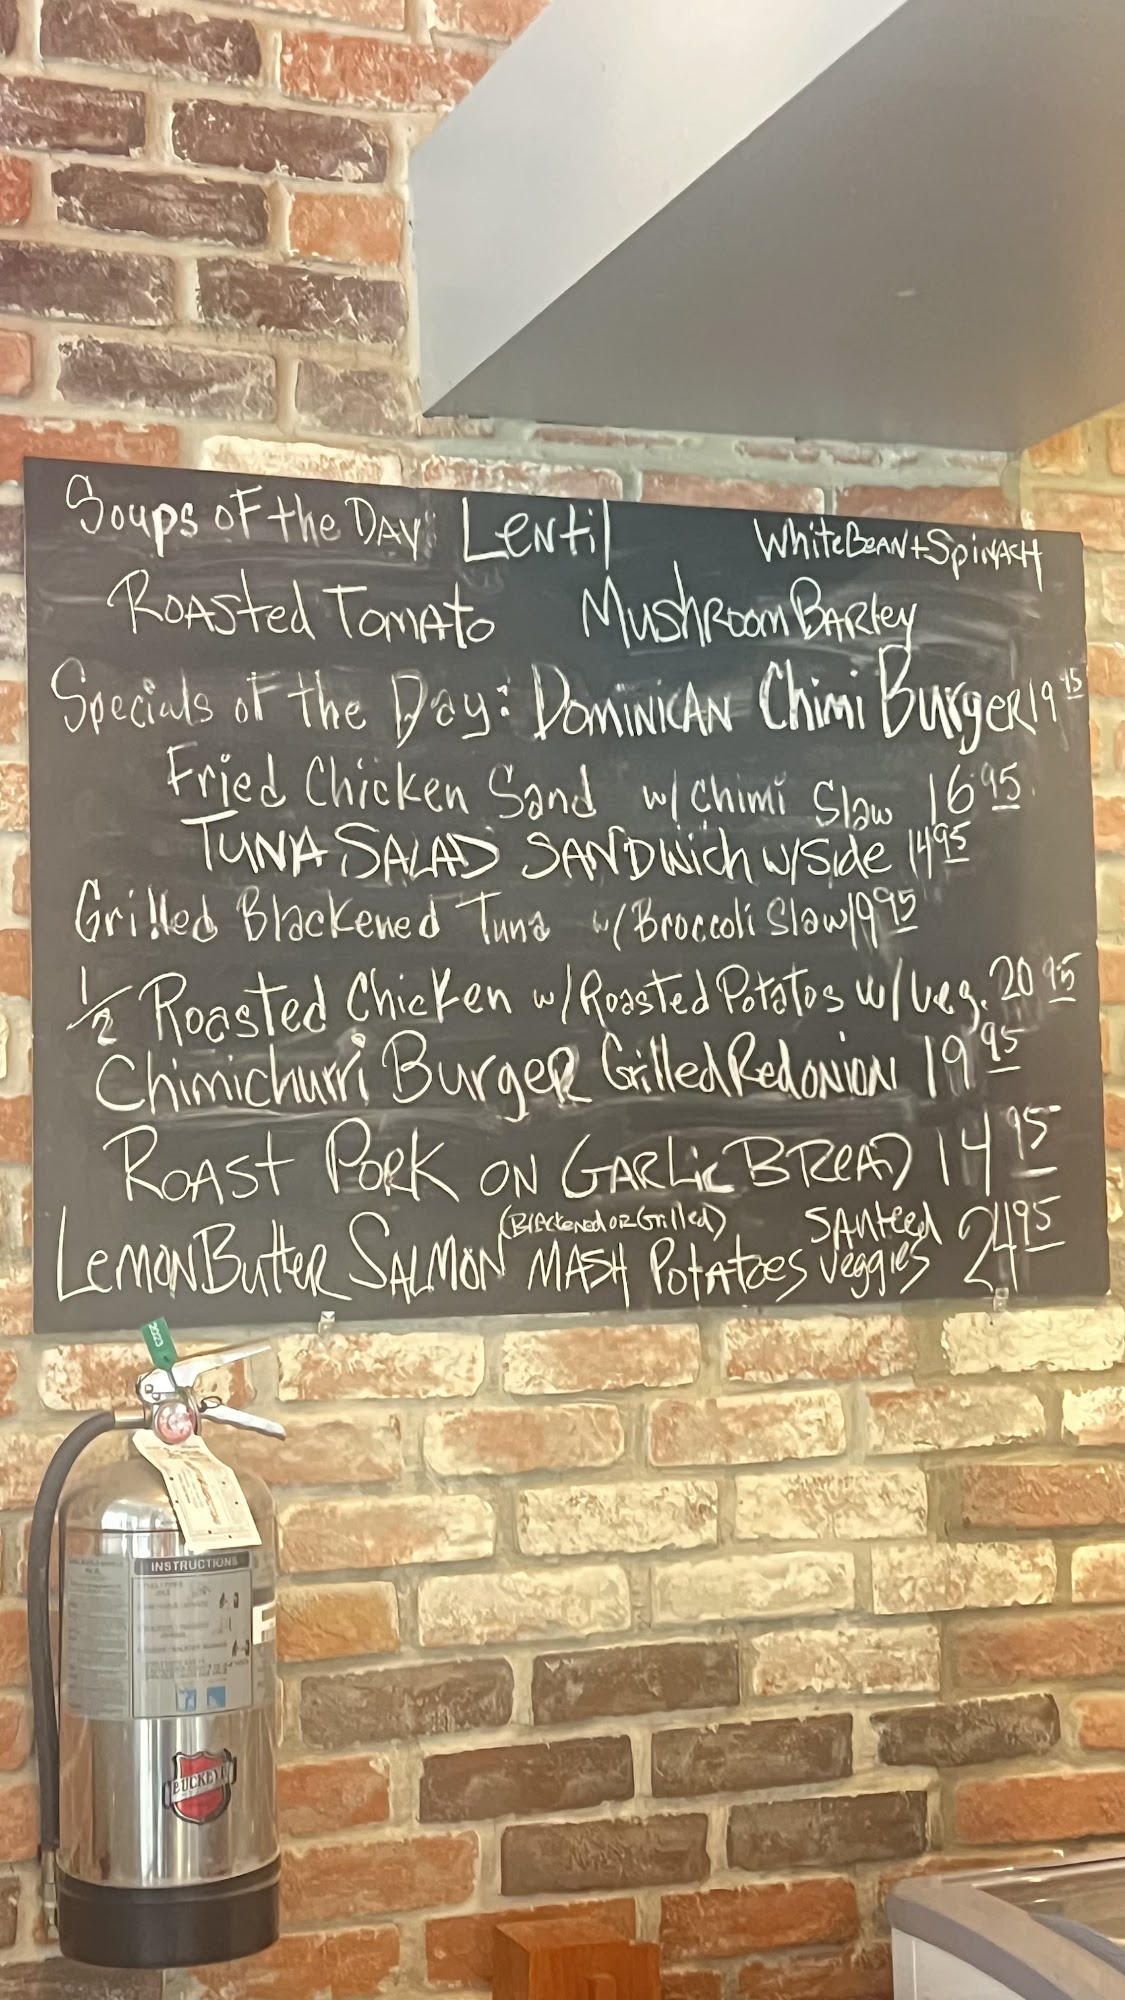 Soups of the Day: Lentil White Bean + Spinach
Roasted Tomato Mushroom Barley
Specials of the Day: Dominican Chimi Burger 19 95
Fried Chicken Sand w/ Chimi Slaw 16 95
Tuna Salad Sandwich w/ Side 14 95
Grilled Blackened Tuna w/ Broccoli Slaw 19 95
1/2 Roasted Chicken w/ Roasted Potatos w/ Veg. 20 95
Chimichurri Burger Grilled Red Onion 19 95
Roast Pork on Garlic Bread 14 95
(Blackened or Grilled) Sauteed
Lemon Butter Salmon Mash Potatoes Veggies 24 95
2023
INSTRUCTIONS
BUCKEYE